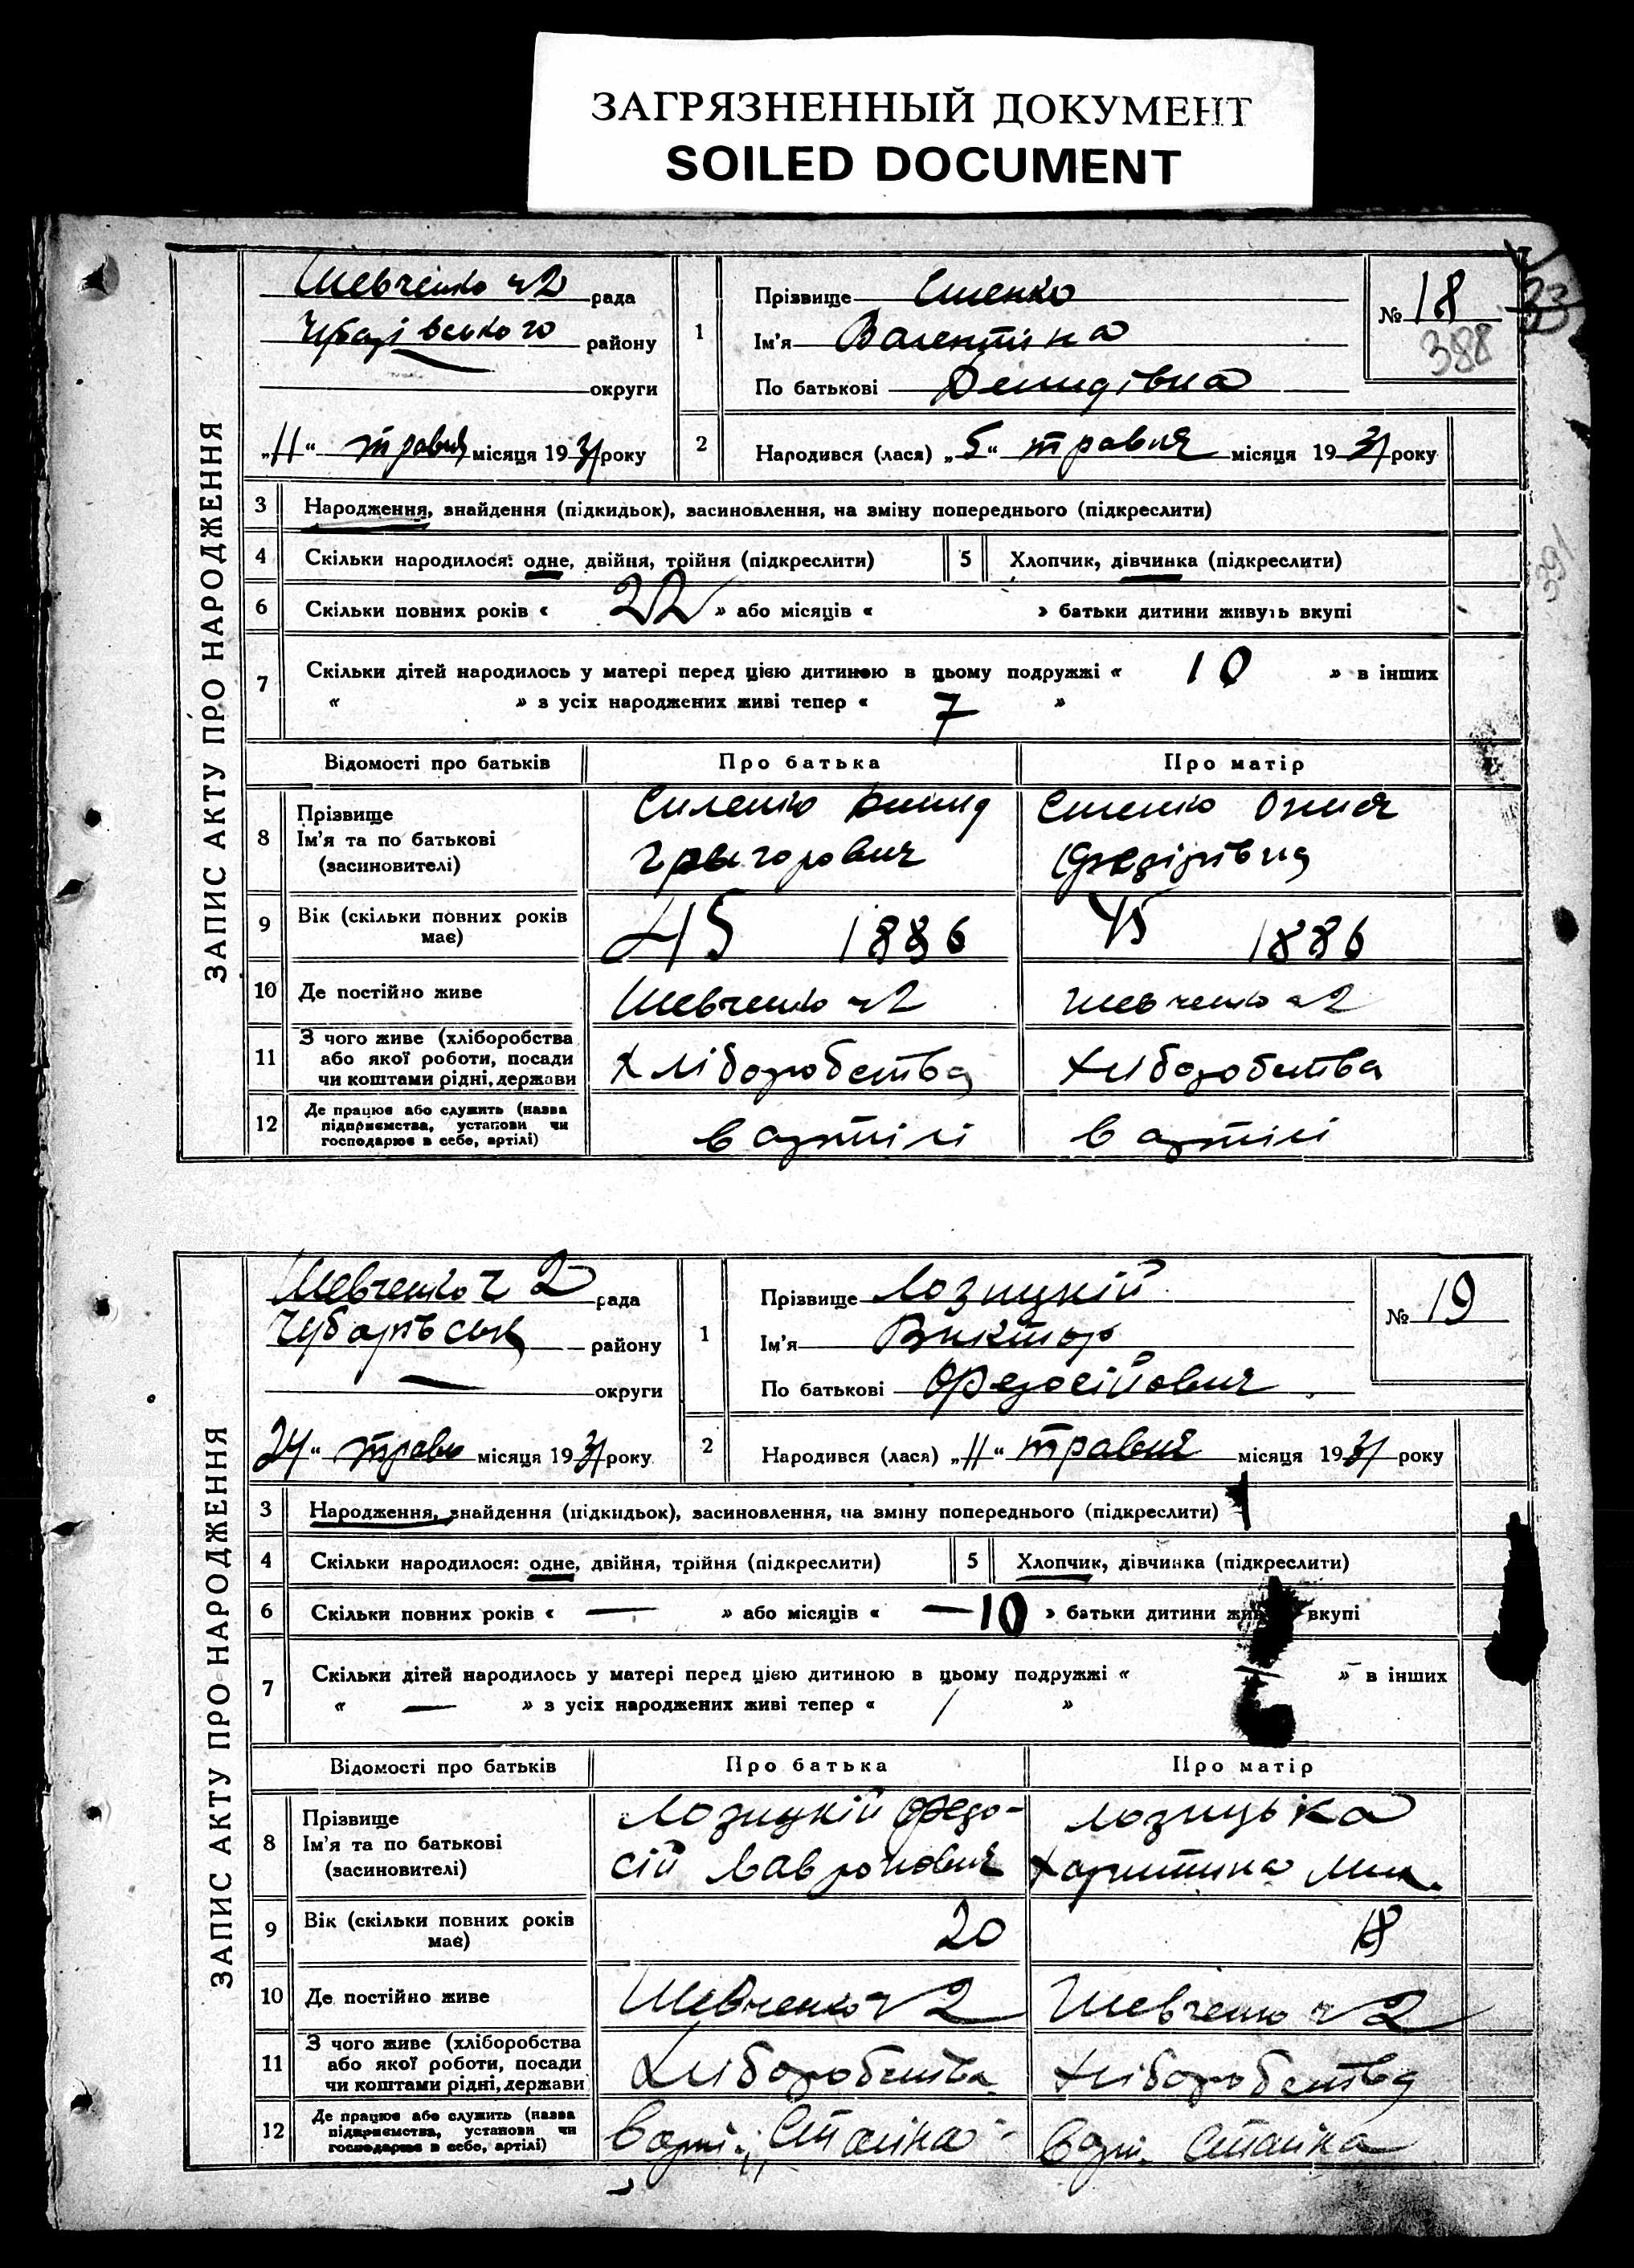 ЗАГРЯЗНЕННЫЙ ДОКУМЕНТ
SOILED DOCUMENT
ЗАПИС АКТУ ПРО НАРОДЖЕННЯ
Шевченко ч2 рада
району
округи
„11“ травня місяця 1931 року
1
Прізвище
Ім'я Валентіна
По батькові Демидівна
№ 18
388
33
391
2
Народився (лася) „5“ травня місяця 1931 року
3 Народження, знайдення (підкидьок), засиновлення, на зміну попереднього (підкреслити)
4 Скільки народилося: одне, двійня, трійня (підкреслити)
5 Хлопчик, дівчинка (підкреслити)
6 Скільки повних років « 22 » або місяців « » батьки дитини живуть вкупі
7 Скільки дітей народилось у матері перед цією дитиною в цьому подружжі « 10 » в інших
« » з усіх народжених живі тепер « 7 »
Відомості про батьків Про батька Про матір
8 Прізвище
Ім'я та по батькові
(засиновителі)
Демид
Григорович
9 Вік (скільки повних років
має)
45 1886 45 1886
10 Де постійно живе Шевченко ч2 Шевченко ч2
11 З чого живе (хліборобства
або якої роботи, посади
чи коштами рідні, держави
Хліборобства Хліборобства
12 Де працює або служить (назва
підприємства, установи чи
господарює в себе, артілі)
в артілі в артілі
ЗАПИС АКТУ ПРО НАРОДЖЕННЯ
Шевченко ч 2 рада
району
округи
24“ травн місяця 1931 року
1
Прізвище Лозицкій
Ім'я Виктор
По батькові Федосійович
№ 19
2
Народився (лася) „11“ травня місяця 1931 року
3 Народження, знайдення (підкидьок), засиновлення, на зміну попереднього (підкреслити)
4 Скільки народилося: одне, двійня, трійня (підкреслити)
5 Хлопчик, дівчинка (підкреслити)
6 Скільки повних років « — » або місяців « —10 » батьки дитини вкупі
7 Скільки дітей народилось у матері перед цією дитиною в цьому подружжі « » в інших
« — » з усіх народжених живі тепер « / »
Відомості про батьків Про батька Про матір
8 Прізвище
Ім'я та по батькові
(засиновителі)
Лозицкій Федо- Лозицька
сій Харитина Мик.
9 Вік (скільки повних років
має)
20 18
10 Де постійно живе Шевченко ч2 Шевченко ч2
11 З чого живе (хліборобства
або якої роботи, посади
чи коштами рідні, держави
Хліборобства Хліборобства
12 Де працює або служить (назва
підприємства, установи чи
господарює в себе, артілі)
В арт. „Сталіна В арт. Сталіна